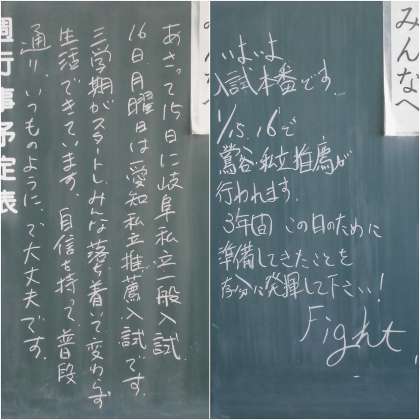 あさって15日に岐阜私立一般入試
16日月曜日は愛知私立推薦入試です。
三学期がスタートし、みんな落ち着いて変わらず
生活できています。自信を持って普段
通り、いつものように、で大丈夫です。
週行事予定表
みんなへ
いよいよ
入試本番です。
1/15.16で
鶯谷・私立推薦が
行われます。
3年間 この日のために
準備してきたことを
存分に発揮して下さい!
Fight